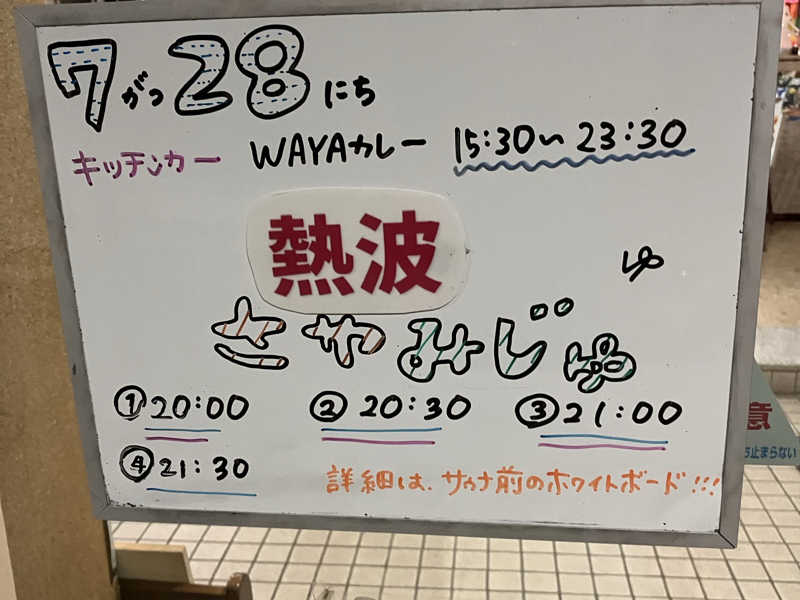 7がつ28にち
キッチンカー WAYAカレー 15:30～23:30
熱波
ゆ
ささみじゅ
①20:00 ②20:30 ③21:00
④21:30
詳細は、サウナ前のホワイトボード!!!
意
ち止まらない